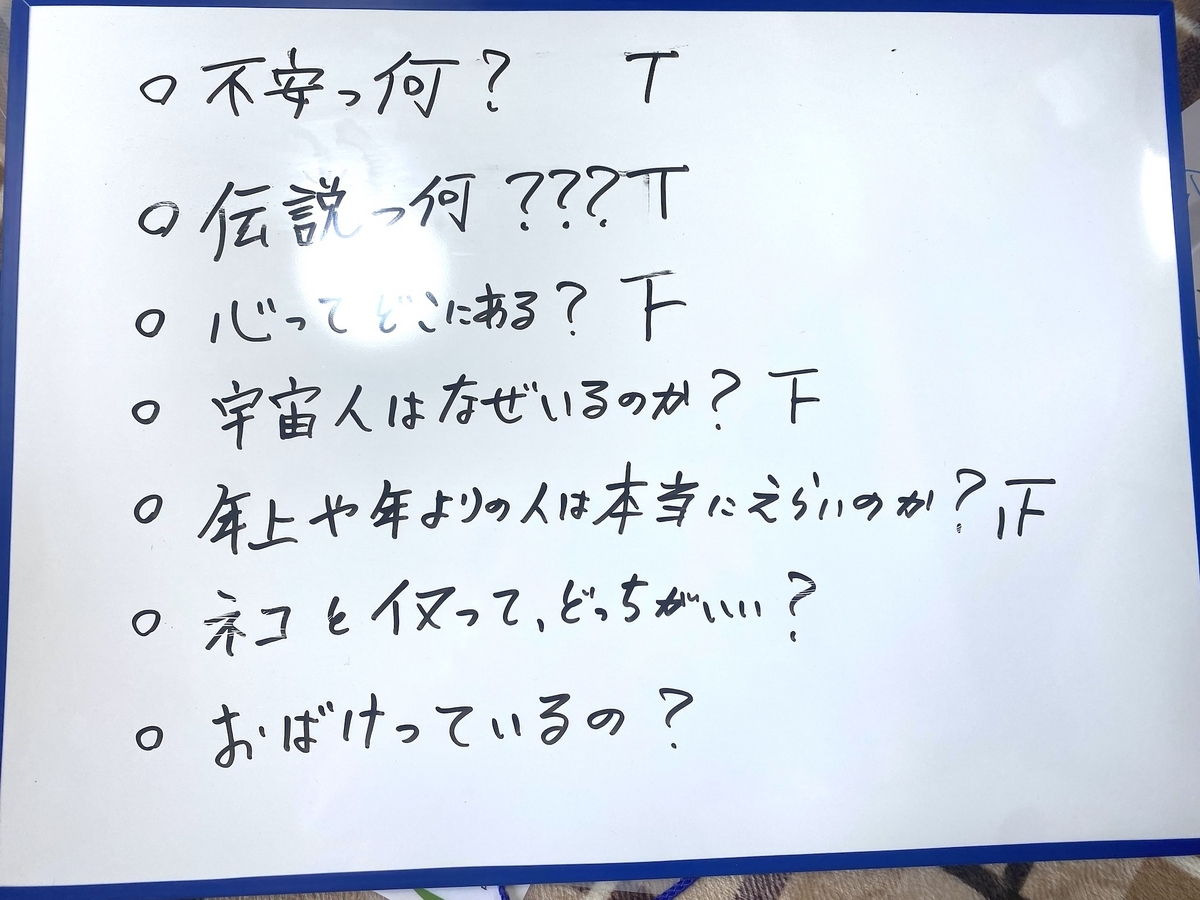 ○ 不安っ何？ T
○ 伝説っ何？？？T
○ 心ってどこにある？ 下
○ 宇宙人はなぜいるのか？ 下
○ 年上や年よりの人は本当にえらいのか？ 正
○ ネコとイヌって、どっちがいい？
○ おばけっているの？